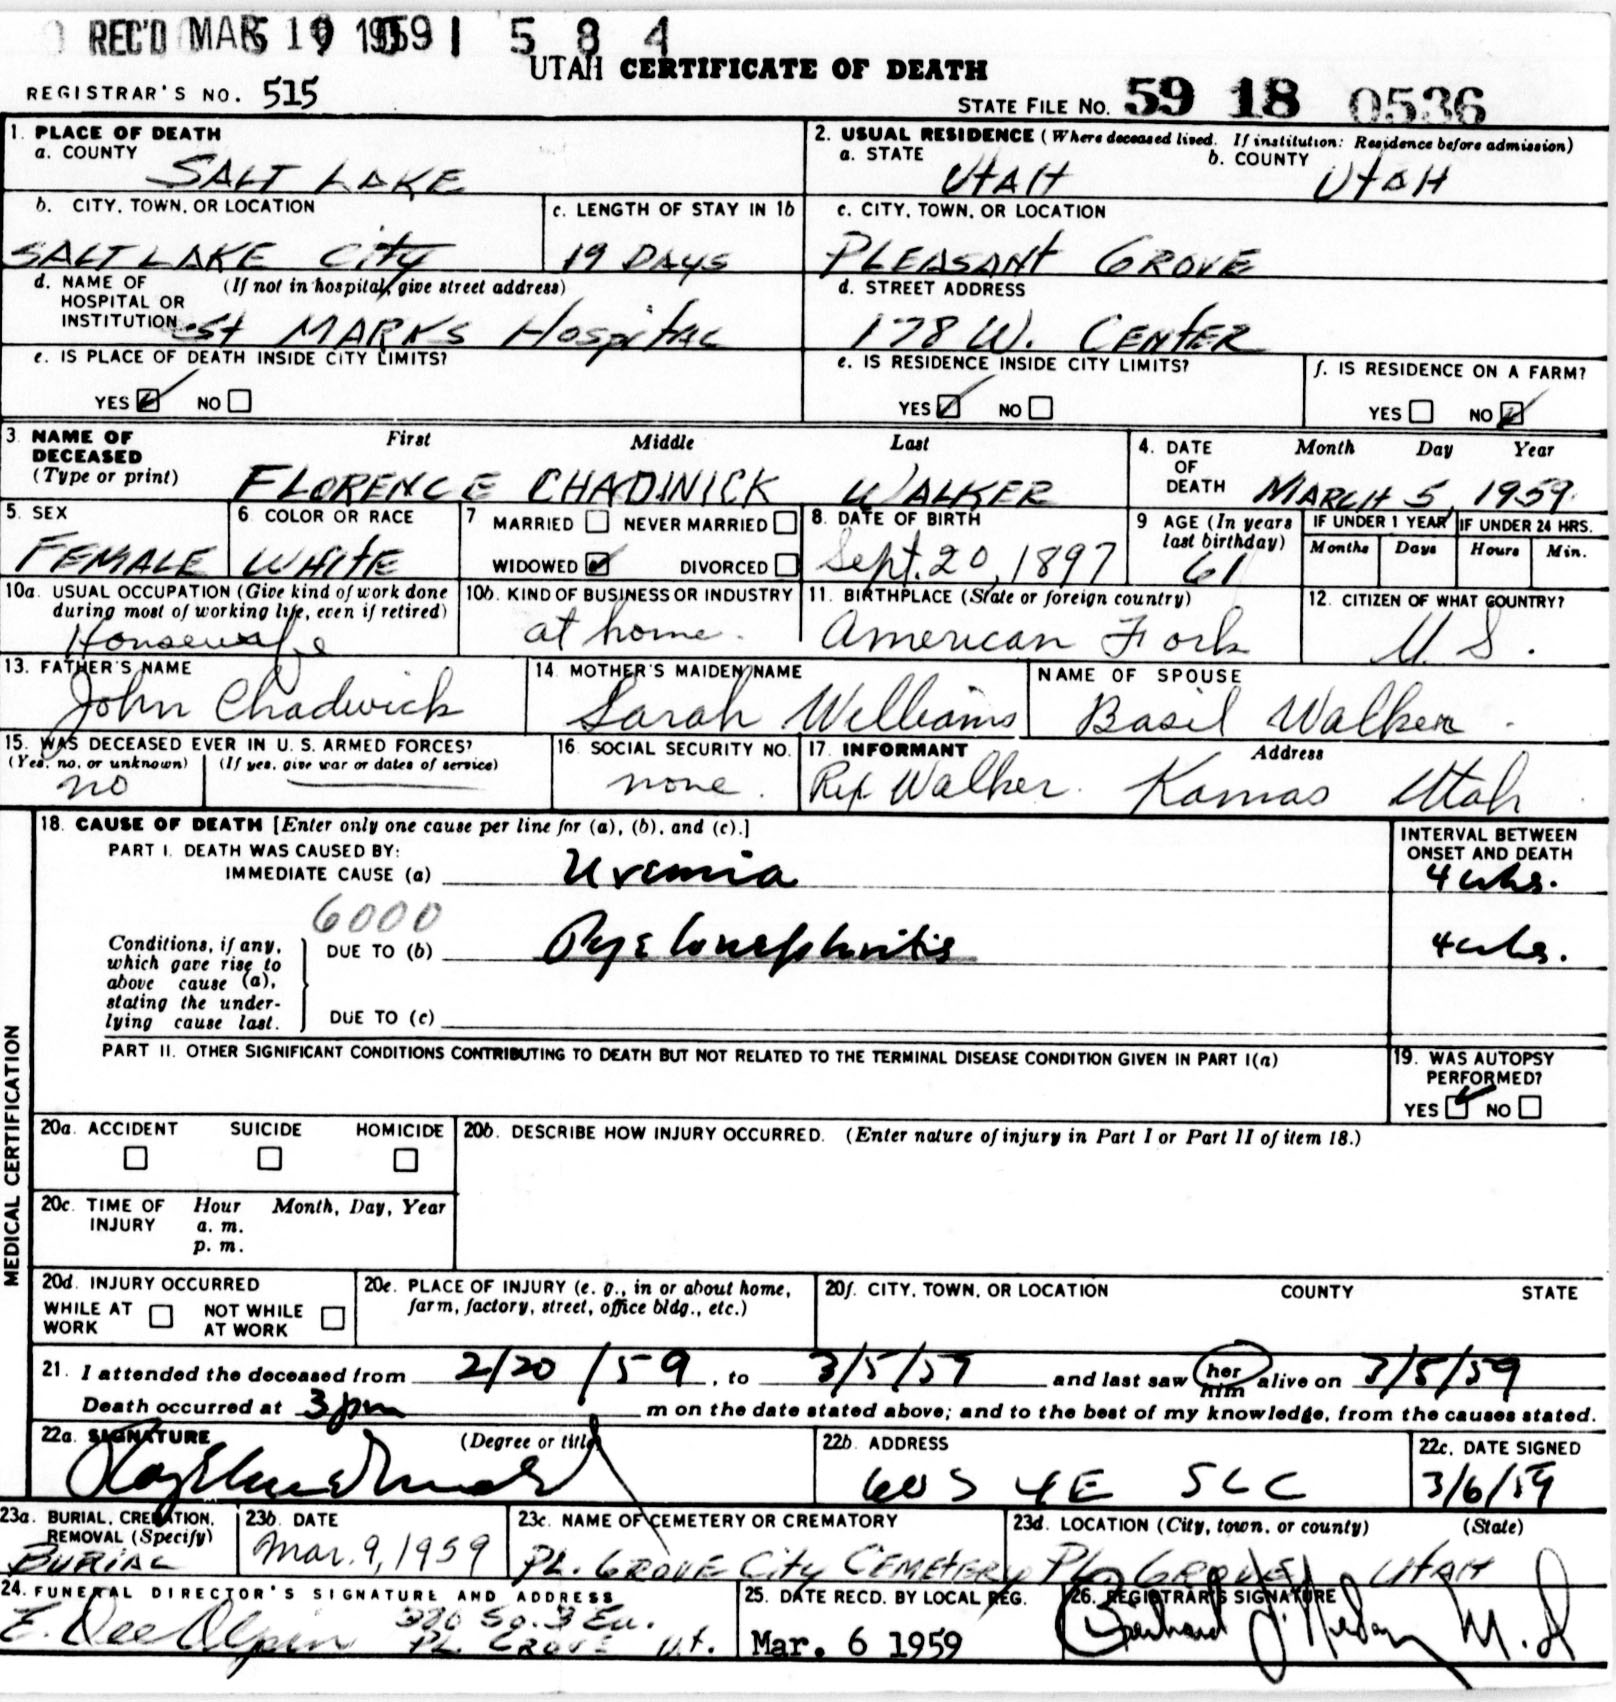 REC'D MAR 10 1959 1 5 8 4
UTAH CERTIFICATE OF DEATH
REGISTRAR'S NO. 515
STATE FILE NO. 59 18 0536
1. PLACE OF DEATH
a. COUNTY
SALT LAKE
2. USUAL RESIDENCE (Where deceased lived. If institution: Residence before admission)
a. STATE b. COUNTY
UTAH UTAH
b. CITY, TOWN, OR LOCATION
SALT LAKE City
c. LENGTH OF STAY IN 1b
19 DAYS
c. CITY, TOWN, OR LOCATION
PLEASANT GROVE
d. NAME OF HOSPITAL OR INSTITUTION (If not in hospital, give street address)
St MARKS Hospital
d. STREET ADDRESS
178 W. CENTER
e. IS PLACE OF DEATH INSIDE CITY LIMITS?
YES NO
e. IS RESIDENCE INSIDE CITY LIMITS?
YES NO
f. IS RESIDENCE ON A FARM?
YES NO
3. NAME OF DECEASED (Type or print)
First Middle Last
FLORENCE CHADWICK WALKER
4. DATE OF DEATH
Month Day Year
MARCH 5, 1959.
5. SEX
FEMALE
6. COLOR OR RACE
WHITE
7 MARRIED NEVER MARRIED
WIDOWED DIVORCED
8. DATE OF BIRTH
Sept. 20, 1897
9 AGE (In years last birthday)
61
IF UNDER 1 YEAR IF UNDER 24 HRS.
Months Days Hours Min.
10a. USUAL OCCUPATION (Give kind of work done during most of working life, even if retired)
Housewife
10b. KIND OF BUSINESS OR INDUSTRY
at home.
11. BIRTHPLACE (State or foreign country)
American Fork
12. CITIZEN OF WHAT COUNTRY?
U.S.
13. FATHER'S NAME
John Chadwick
14. MOTHER'S MAIDEN NAME
Sarah Williams
NAME OF SPOUSE
Basil Walker
15. WAS DECEASED EVER IN U.S. ARMED FORCES?
(Yes, no, or unknown) (If yes, give war or dates of service)
no
16. SOCIAL SECURITY NO.
none.
17. INFORMANT Address
Rex Walker. Kamas Utah
MEDICAL CERTIFICATION
18. CAUSE OF DEATH [Enter only one cause per line for (a), (b), and (c).]
PART I. DEATH WAS CAUSED BY:
IMMEDIATE CAUSE (a) Uremia
INTERVAL BETWEEN ONSET AND DEATH
4 wks.
6000
Conditions, if any, which gave rise to above cause (a), stating the underlying cause last.
DUE TO (b) Pyelonephritis
4 wks.
DUE TO (c)
PART II. OTHER SIGNIFICANT CONDITIONS CONTRIBUTING TO DEATH BUT NOT RELATED TO THE TERMINAL DISEASE CONDITION GIVEN IN PART I(a)
19. WAS AUTOPSY PERFORMED?
YES NO
20a. ACCIDENT SUICIDE HOMICIDE
20b. DESCRIBE HOW INJURY OCCURRED. (Enter nature of injury in Part I or Part II of item 18.)
20c. TIME OF INJURY
Hour Month, Day, Year
a. m.
p. m.
20d. INJURY OCCURRED
WHILE AT WORK NOT WHILE AT WORK
20e. PLACE OF INJURY (e. g., in or about home, farm, factory, street, office bldg., etc.)
20f. CITY, TOWN, OR LOCATION COUNTY STATE
21. I attended the deceased from 2/20/59, to 3/5/59 and last saw her him alive on 3/5/59
Death occurred at 3 pm m on the date stated above; and to the best of my knowledge, from the causes stated.
22a. SIGNATURE (Degree or title)
22b. ADDRESS
60 S 4E SLC
22c. DATE SIGNED
3/6/59
23a. BURIAL, CREMATION, REMOVAL (Specify)
BURIAL
23b. DATE
Mar. 9, 1959
23c. NAME OF CEMETERY OR CREMATORY
PL. GROVE City CEMETERY
23d. LOCATION (City, town, or county) (State)
PL GROVE UTAH
24. FUNERAL DIRECTOR'S SIGNATURE AND ADDRESS
E. Dee Alpin 380 So. 3 Ea.
PL. GROVE Ut.
25. DATE RECD. BY LOCAL REG.
Mar. 6 1959
26. REGISTRAR'S SIGNATURE
M.D